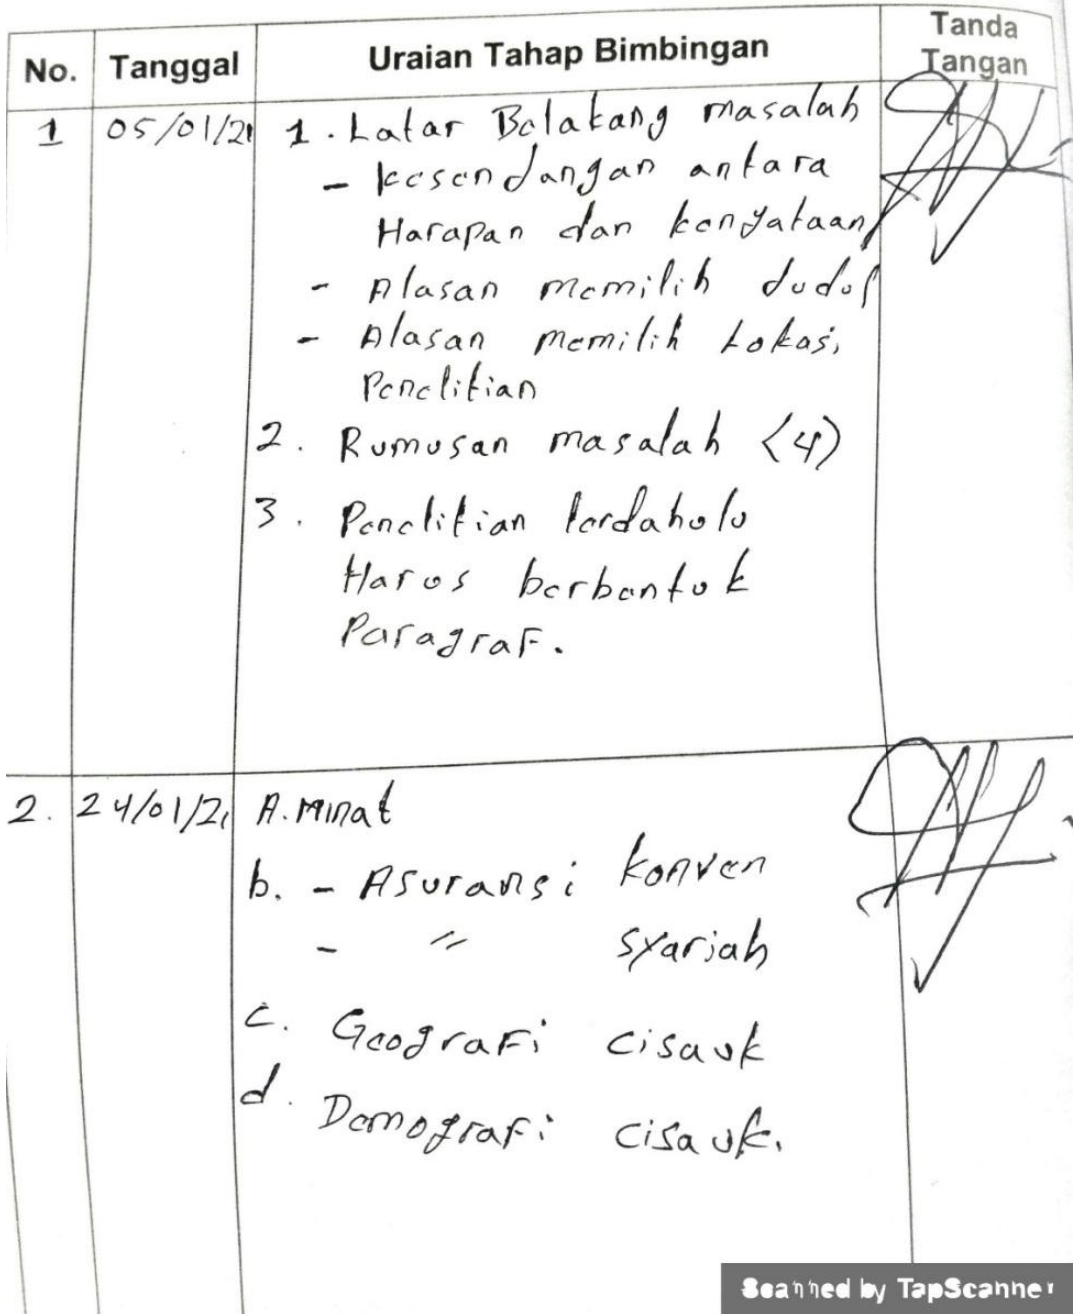 No. Tanggal Uraian Tahap Bimbingan Tanda Tangan
1 05/01/21 1. Latar Belakang masalah
- kesendangan antara
Harapan dan kenyataan
- Alasan memilih Judul
- Alasan memilih Lokasi
Penelitian
2. Rumusan masalah (4)
3. Penelitian terdahulu
Harus berbentuk
Paragraf.
2. 24/01/21 A. Minat
b. - Asuransi konven
- " syariah
c. Geografi cisauk
d. Demografi cisauk.
Scanned by TapScanner